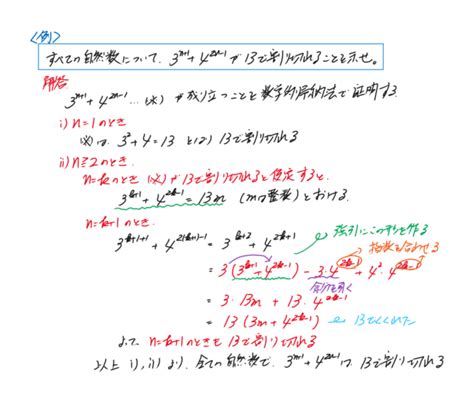 <例>
すべての自然数について、3^{n+1}+4^{2n-1}が13で割り切れることを示せ。
解答
3^{n+1}+4^{2n-1}…(*)が成り立つことを数学的帰納法で証明する
i) n=1のとき
(*)は、3²+4=13 となり 13で割り切れる
ii) n≧2のとき、
n=kのとき(*)が13で割り切れると仮定すると、
3^{k+1}+4^{2k-1}=13m (mは整数)とおける
n=k+1のとき、
3^{k+1+1}+4^{2(k+1)-1}=3^{k+2}+4^{2k+1}
強引にこの形を作る
指数を合わせる
=3(3^{k+1}+4^{2k-1})-3・4^{2k-1}+4²・4^{2k-1}
余分を引く
=3・13m+13・4^{2k-1}
=13(3m+4^{2k-1})
13でくくれた
よって n=k+1のときも13で割り切れる
以上 i), ii) より、全ての自然数で、3^{n+1}+4^{2n-1}は13で割り切れる